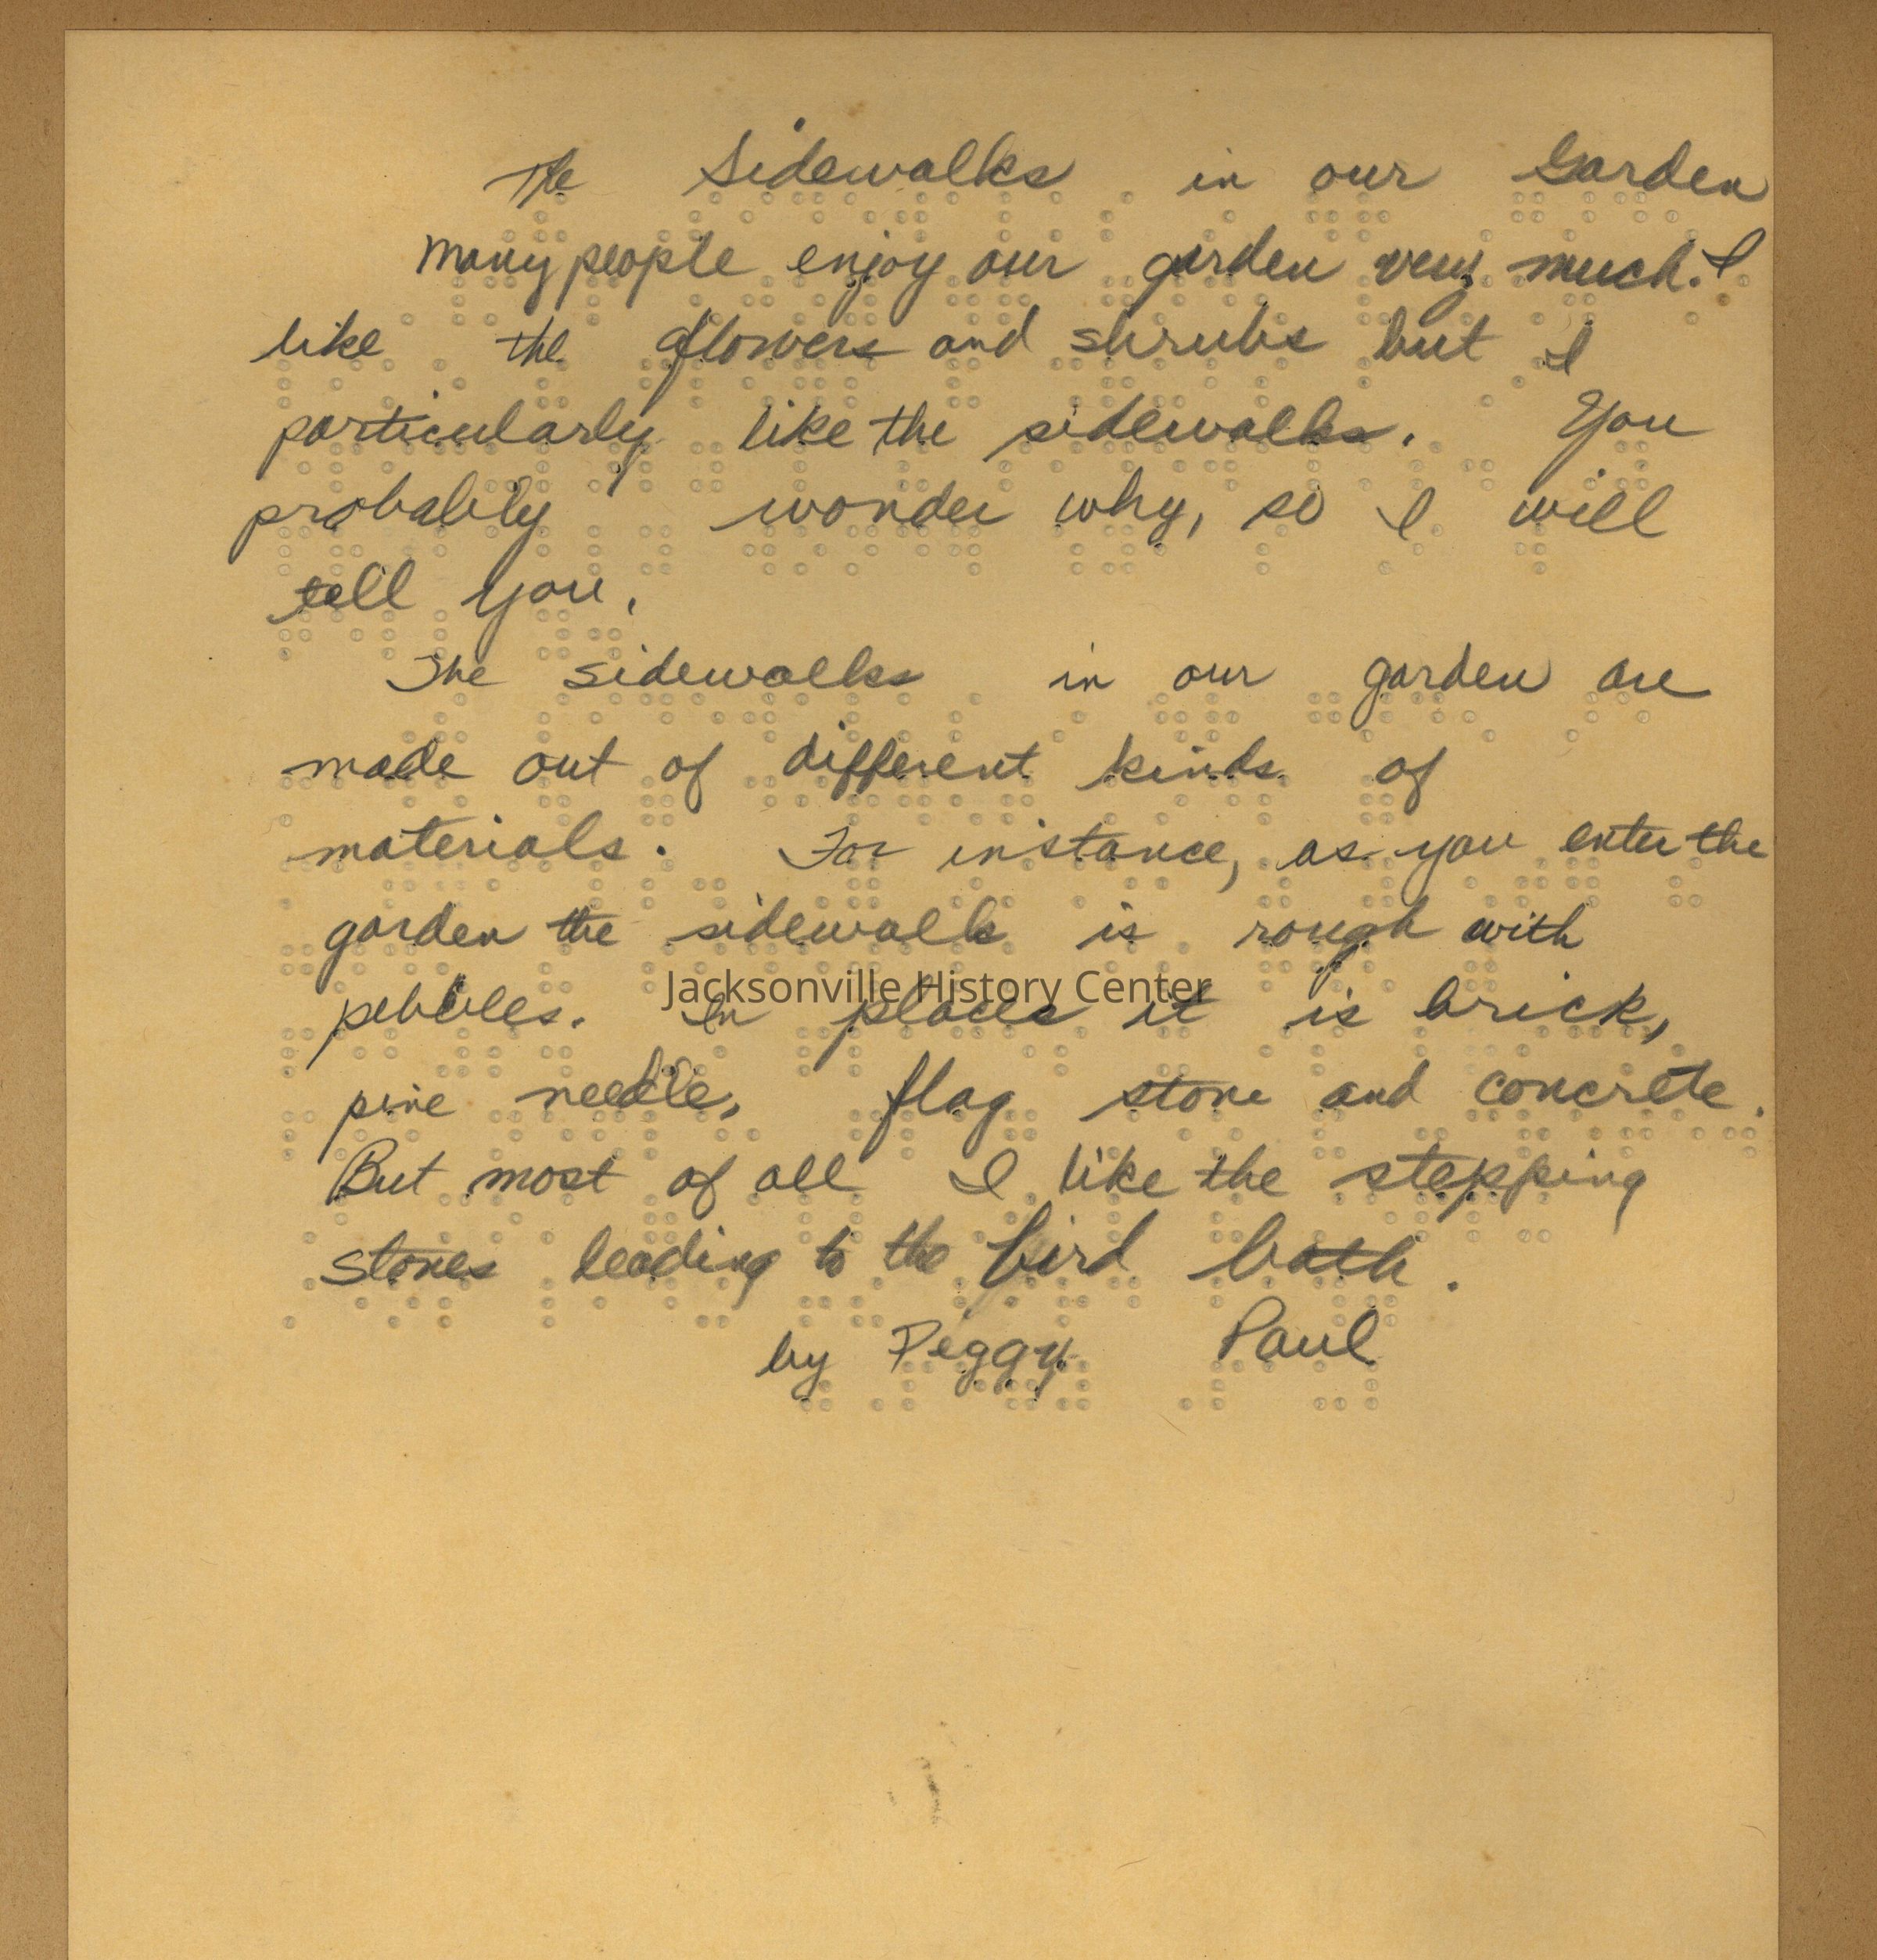 The Sidewalks in our Garden
Many people enjoy our garden very much. I
like the flowers and shrubs but I
particularly like the sidewalks. You
probably wonder why, so I will
tell you.
The sidewalks in our garden are
made out of different kinds of
materials. For instance, as you enter the
garden the sidewalk is rough with
pebbles. In places it is brick,
Jacksonville History Center
pine needle, flag stone and concrete.
But most of all I like the stepping
stones leading to the bird bath.
by Peggy Paul